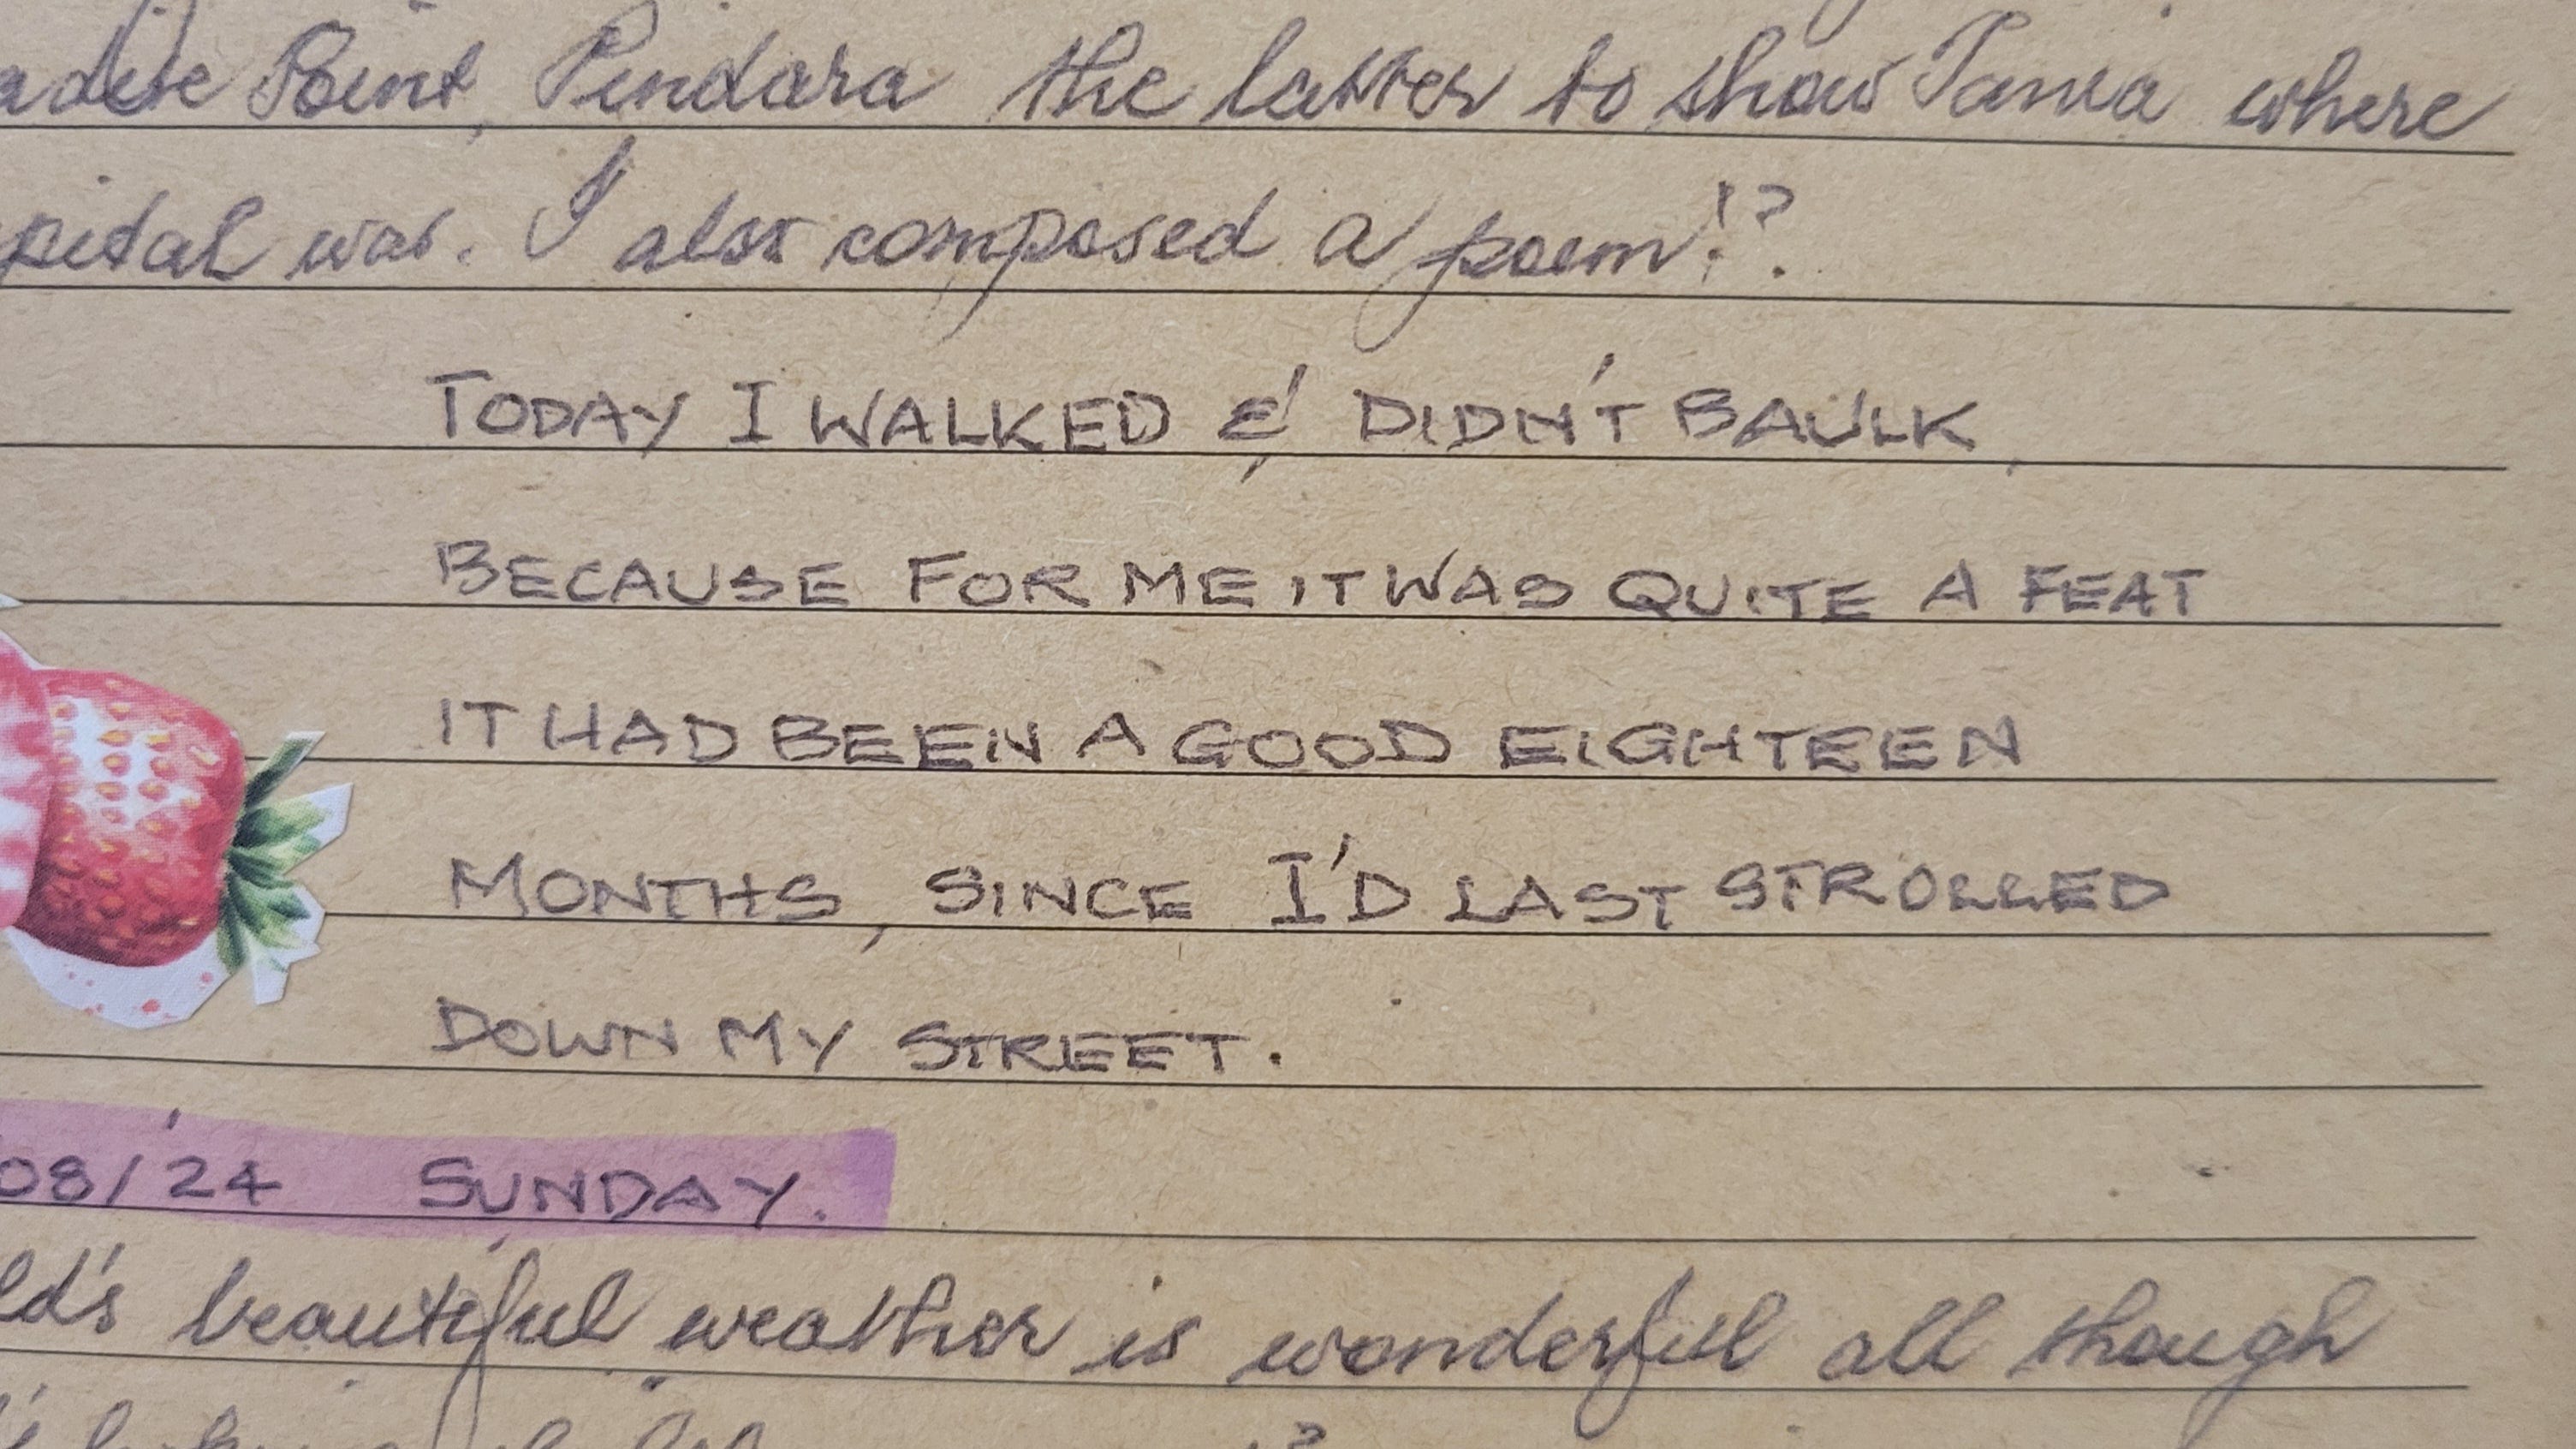 adise Point, Pindara the latter to show Tania where
pital was. I also composed a poem!?
TODAY I WALKED & DIDN'T BAULK,
BECAUSE FOR ME IT WAS QUITE A FEAT
IT HAD BEEN A GOOD EIGHTEEN
MONTHS, SINCE I'D LAST STROLLED
DOWN MY STREET.
08/24 SUNDAY.
ld's beautiful weather is wonderful all though